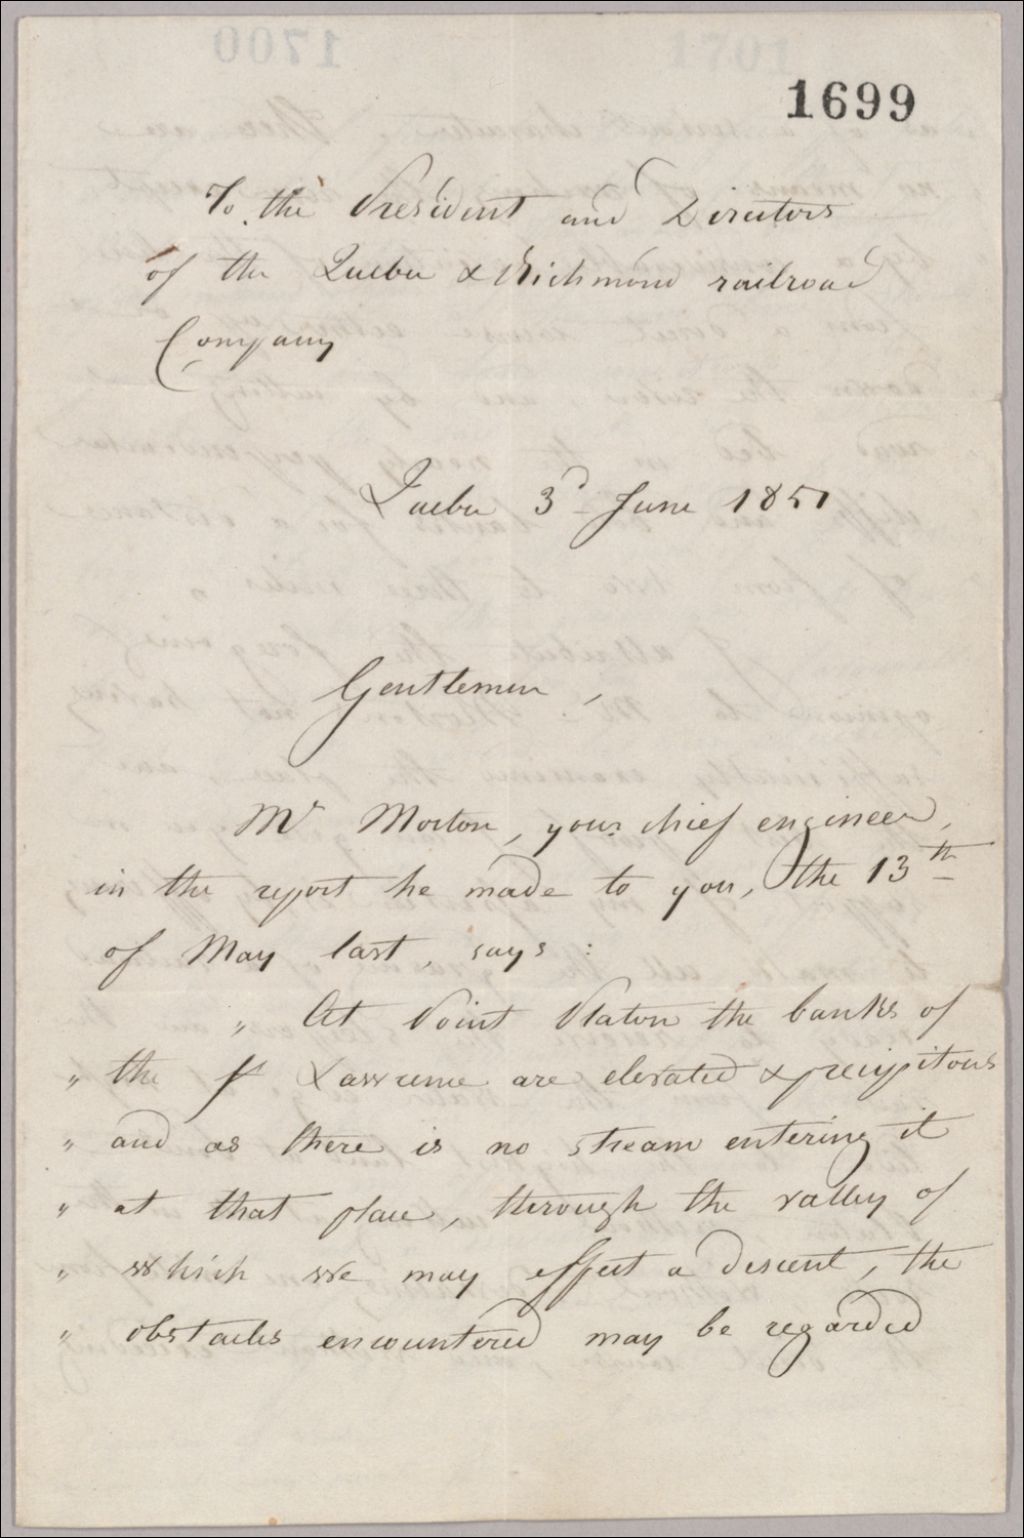 1699
To the President and Directors
of the Quebec & Richmond railroad
Company
Quebec 3d June 1851
Gentlemen,
Mr Morton, your chief engineer,
in the report he made to you, the 13th
of May last, says:
" At Point Platon the banks of
" the St Lawrence are elevated & precipitous
" and as there is no stream entering it
" at that place, through the valley of
" which we may effect a descent, the
" obstacles encountered may be regarded